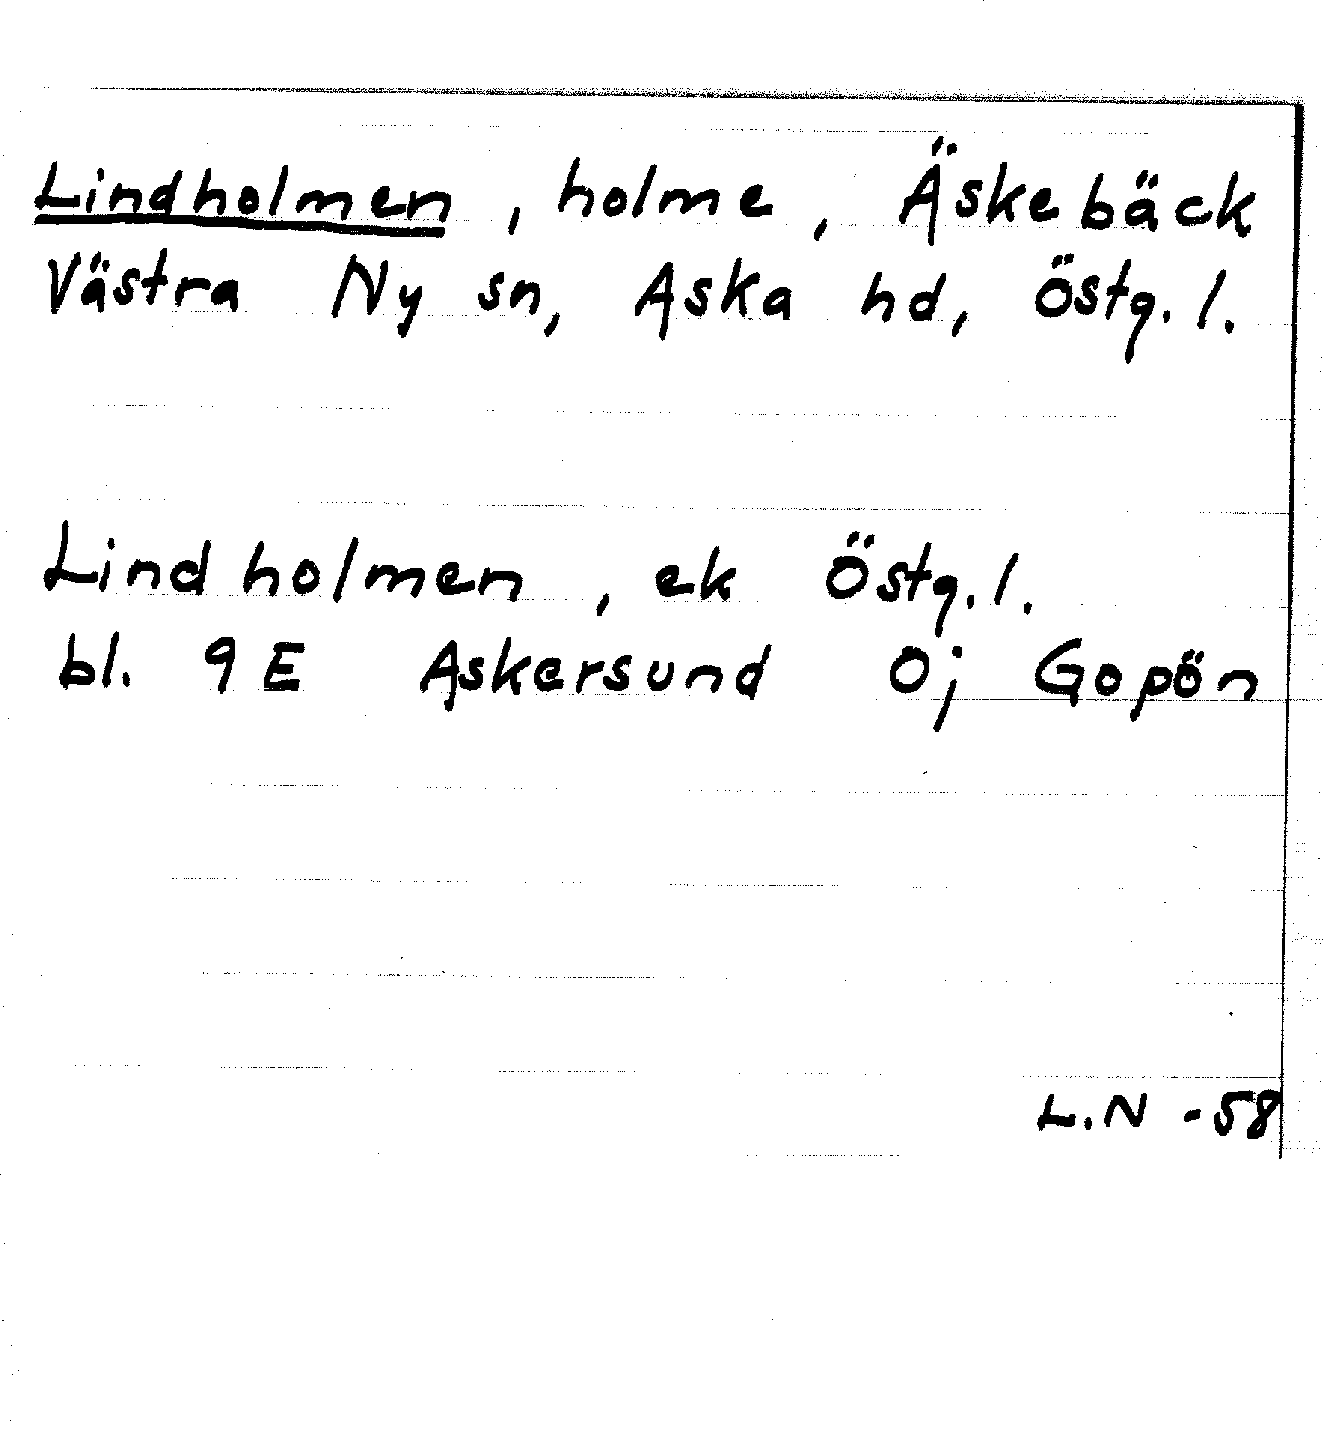 Lindholmen, holme, Äskebäck
Västra Ny sn, Aska hd, Östg. l.
Lindholmen, ek Östg. l.
bl. 9 E Askersund Oj Gopön
L.N -58